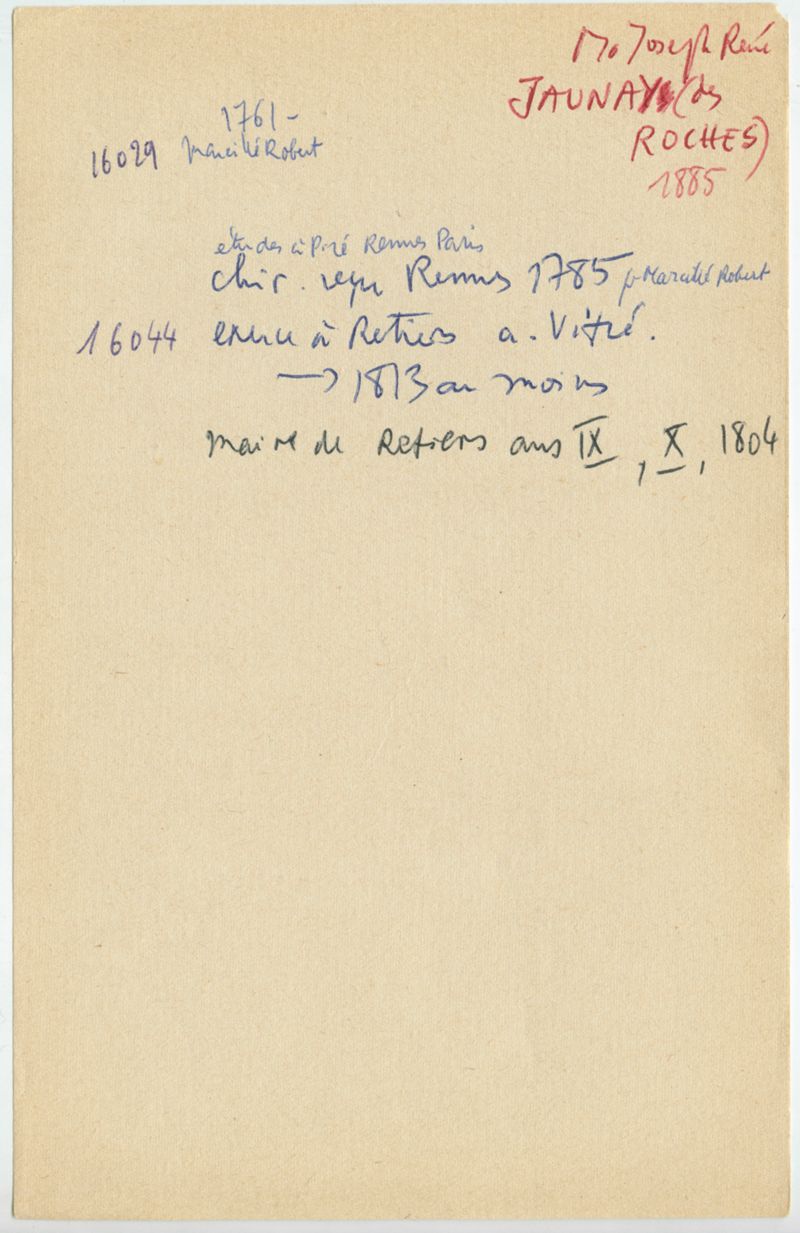 Mo Joseph René
JAUNAY (des
ROCHES)
1885
1761-
16029 Marcillé Robert
études à Piré Rennes Paris
chir. reçu Rennes 1785 pr Marcillé Robert
16044 exerce à Retiers a. Vitré.
→ 1813 au moins
maire de Retiers ans IX, X, 1804